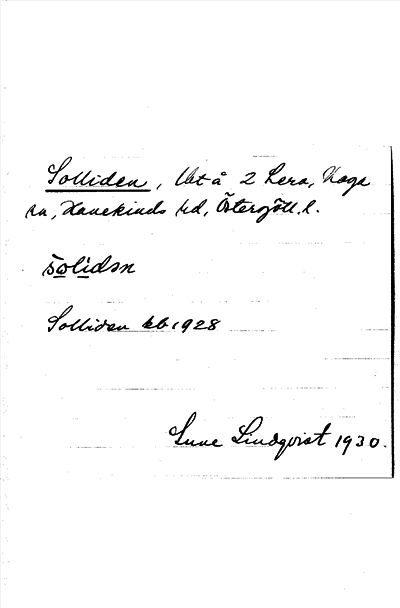 Solliden, lht å 2 Lera, Haga
sn, Hanekinds hd, Östergötl. l.
solidən
Solliden kb 1928
Sune Lindqvist 1930.